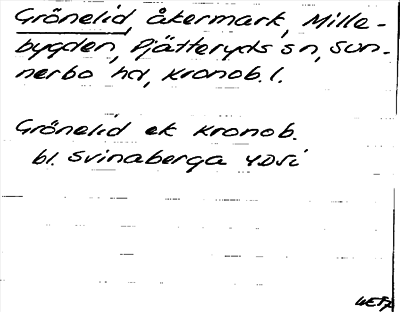 Grönelid, åkermark, Mille-
bygden, Pjätteryds sn, Sun-
nerbo hd, Kronob. l.
Grönelid ek Kronob.
bl. Svinaberga 4D5i